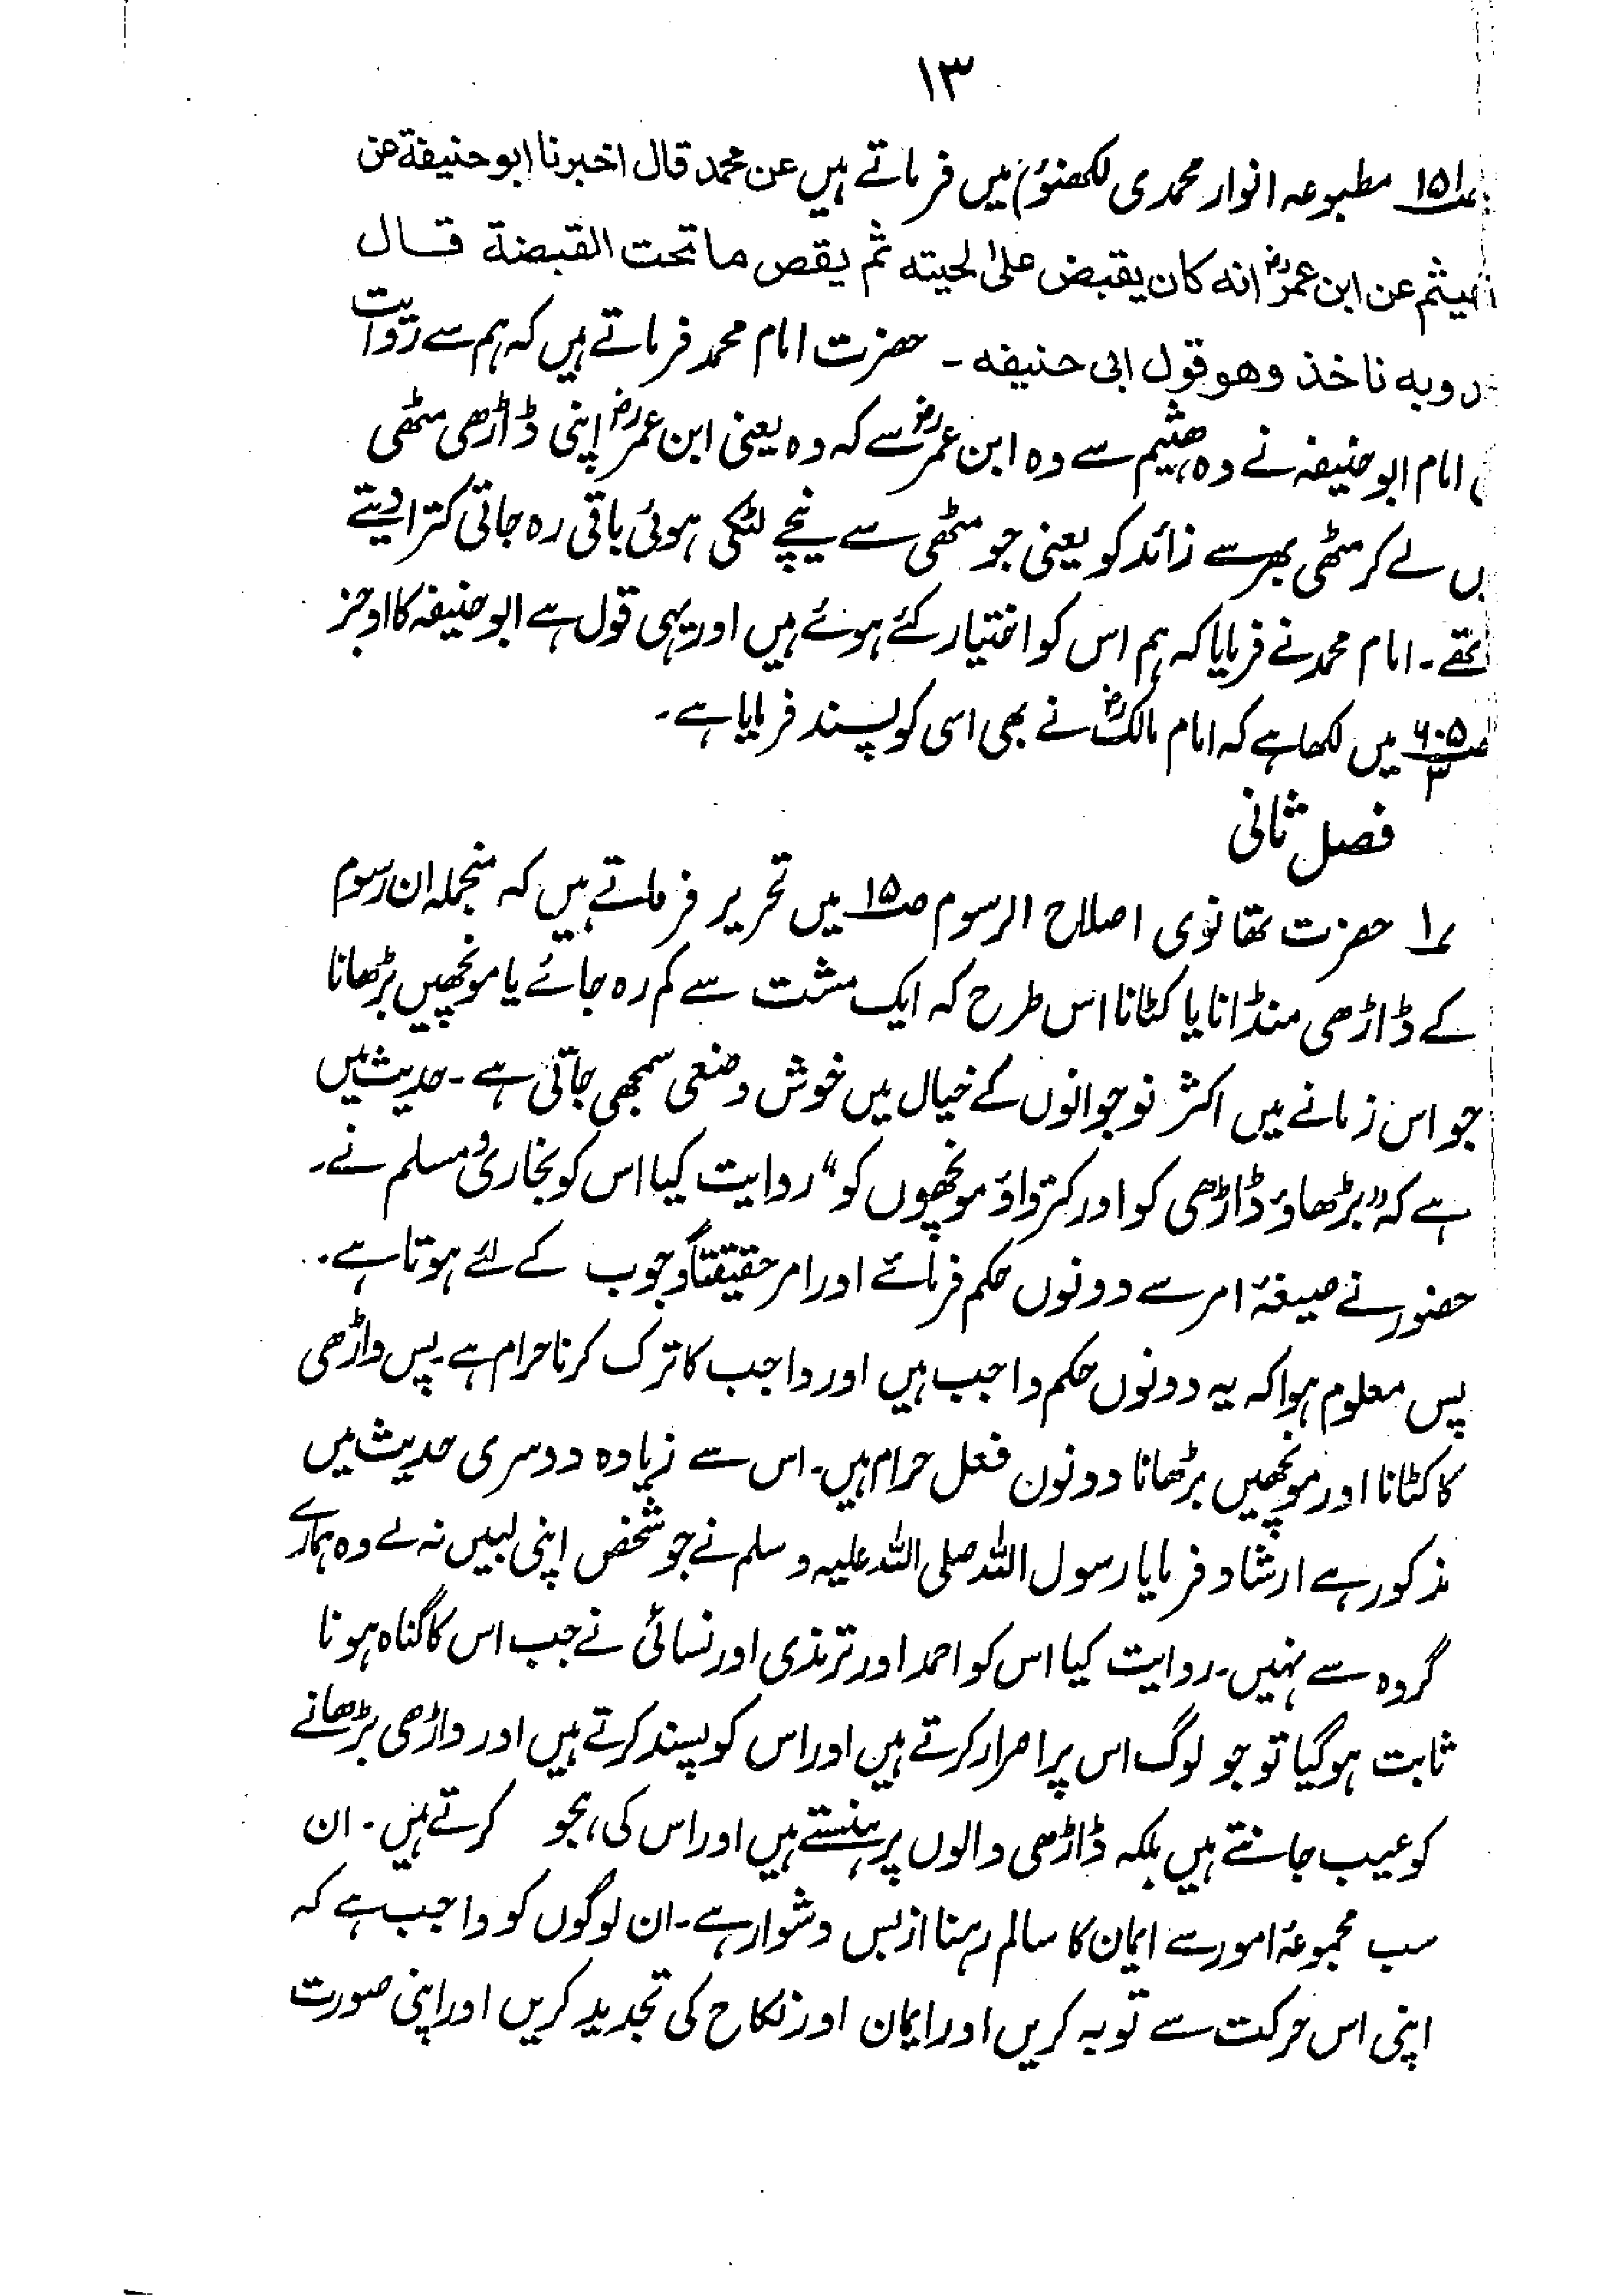 ۱۳
۱۵۱ مطبوعہ انوار محمدی لکھنؤ) میں فرماتے ہیں عن محمد قال اخبرنا ابو حنیفة عن
الهیثم عن ابن عمرؓ انه کان یقبض علیٰ لحیته ثم یقص ما تحت القبضة قال
محمد وبه ناخذ وهو قول ابی حنیفه ۔ حضرت امام محمد فرماتے ہیں کہ ہم سے روایت
کی امام ابو حنیفہ نے وہ ہیثم سے وہ ابن عمرؓ سے کہ وہ یعنی ابن عمرؓ اپنی ڈاڑھی مٹھی
میں لے کر مٹھی بھر سے زائد کو یعنی جو مٹھی سے نیچے لٹکی ہوئی باقی رہ جاتی کترا دیتے
تھے۔ امام محمد نے فرمایا کہ ہم اس کو اختیار کئے ہوئے ہیں اور یہی قول ہے ابو حنیفہ کا اوجز
ص۶۰۵ ۳ میں لکھا ہے کہ امام مالکؒ نے بھی اسی کو پسند فرمایا ہے۔
فصل ثانی
۱؎ حضرت تھانوی اصلاح الرسوم ص۱۵ میں تحریر فرماتے ہیں کہ منجملہ ان رسوم
کے ڈاڑھی منڈانا یا کٹانا اس طرح کہ ایک مشت سے کم رہ جائے یا مونچھیں بڑھانا
جو اس زمانے میں اکثر نوجوانوں کے خیال میں خوش وضعی سمجھی جاتی ہے۔ حدیث میں
ہے کہ "بڑھاؤ ڈاڑھی کو اور کترواؤ مونچھوں کو" روایت کیا اس کو بخاری و مسلم نے۔
حضور نے صیغۂ امر سے دونوں حکم فرمائے اور امر حقیقتاً وجوب کے لئے ہوتا ہے۔
پس معلوم ہوا کہ یہ دونوں حکم واجب ہیں اور واجب کا ترک کرنا حرام ہے۔ پس داڑھی
کا کٹانا اور مونچھیں بڑھانا دونوں فعل حرام ہیں۔ اس سے زیادہ دوسری حدیث میں
مذکور ہے ارشاد فرمایا رسول اللہ صلی اللہ علیہ وسلم نے جو شخص اپنی لبیں نہ لے وہ ہمارے
گروہ سے نہیں۔ روایت کیا اس کو احمد اور ترمذی اور نسائی نے جب اس کا گناہ ہونا
ثابت ہو گیا تو جو لوگ اس پر اصرار کرتے ہیں اور اس کو پسند کرتے ہیں اور داڑھی بڑھانے
کو عیب جانتے ہیں بلکہ ڈاڑھی والوں پر ہنستے ہیں اور اس کی ہجو کرتے ہیں۔ ان
سب مجموعۂ امور سے ایمان کا سالم رہنا از بس دشوار ہے۔ ان لوگوں کو واجب ہے کہ
اپنی اس حرکت سے توبہ کریں اور ایمان اور نکاح کی تجدید کریں اور اپنی صورت